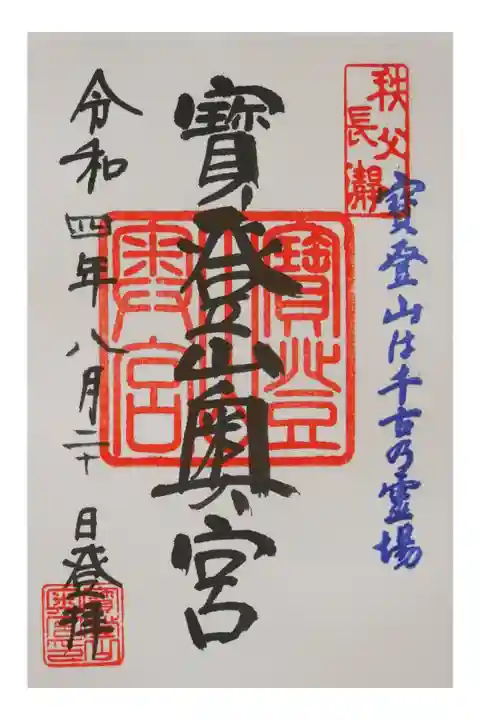 秩父
長瀞
寶登山は千古乃霊場
寶登山奥宮
寶登山
奥宮
令和四年八月二十日登拝